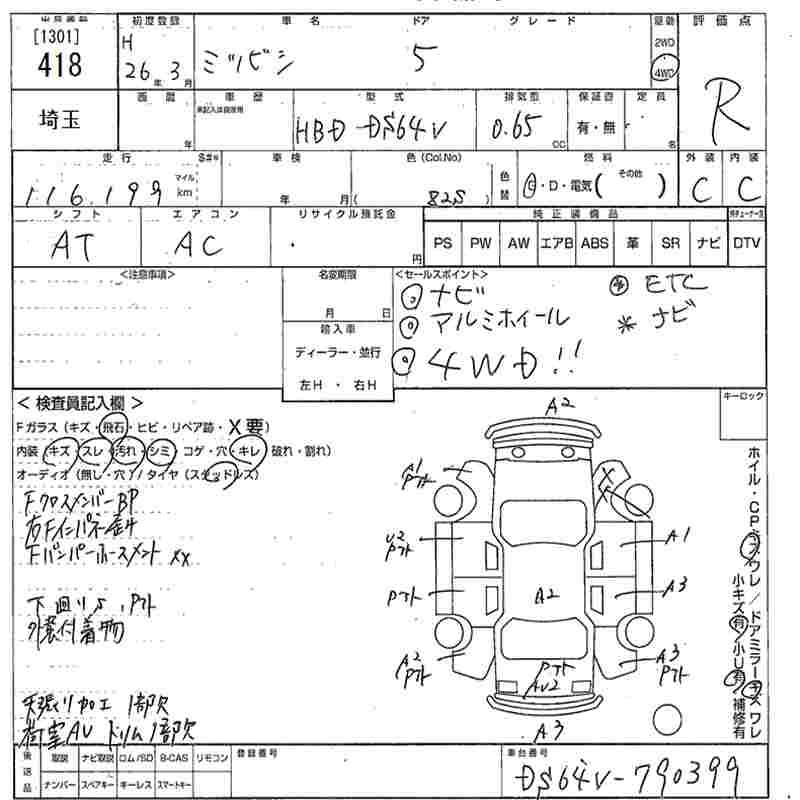 出品番号 初度登録 車名 ドア グレード 駆動 評価点
[1301] 418
H 26年3月 ミツビシ 5 2WD 4WD R
埼玉 西暦 年 車歴 未記入は自家用 型式 HBD-DS64V 排気量 0.65 cc 保証書 有・無 定員 名
走行 116,199 マイル km S#* 車検 年 月 色(Col.No) ( 82S ) 色替 燃料 G・D・電気( その他 ) 外装 C 内装 C
シフト AT エアコン AC リサイクル預託金 円 純正装備品
PS PW AW エアB ABS 革 SR ナビ DTV
<注意事項> 名変期限 月 日 <セールスポイント>
① ナビ
② アルミホイール
③ 4WD!!
* ETC
* ナビ
輸入車
ディーラー・並行
左H・右H
<検査員記入欄> キーロック
Fガラス(キズ・飛石・ヒビ・リペア跡・X要)
内装(キズ・スレ・汚れ・シミ・コゲ・穴・キレ・破れ・割れ)
オーディオ(無し・穴)/タイヤ(スタッドレス)
FクロスメンバーBP
右Fインパネ
Fバンパーホースメント XX
下回りS、Pアト
外装付着物
天張り加工 1部欠
荷室AU トリム1部欠
A2
A1 Pアト X X
U2 Pアト A1
Pアト A2 A3
A2 Pアト Pアト AU2 A3 Pアト
A3
ホイル・CPキズワレ/ドアミラーキズワレ
小キズ有/小U有/補修有
後送品 取説 ナビ取説 ロム/SD B-CAS リモコン 登録番号 車台番号
ナンバー スペアキー キーレス スマートキー DS64V-790399